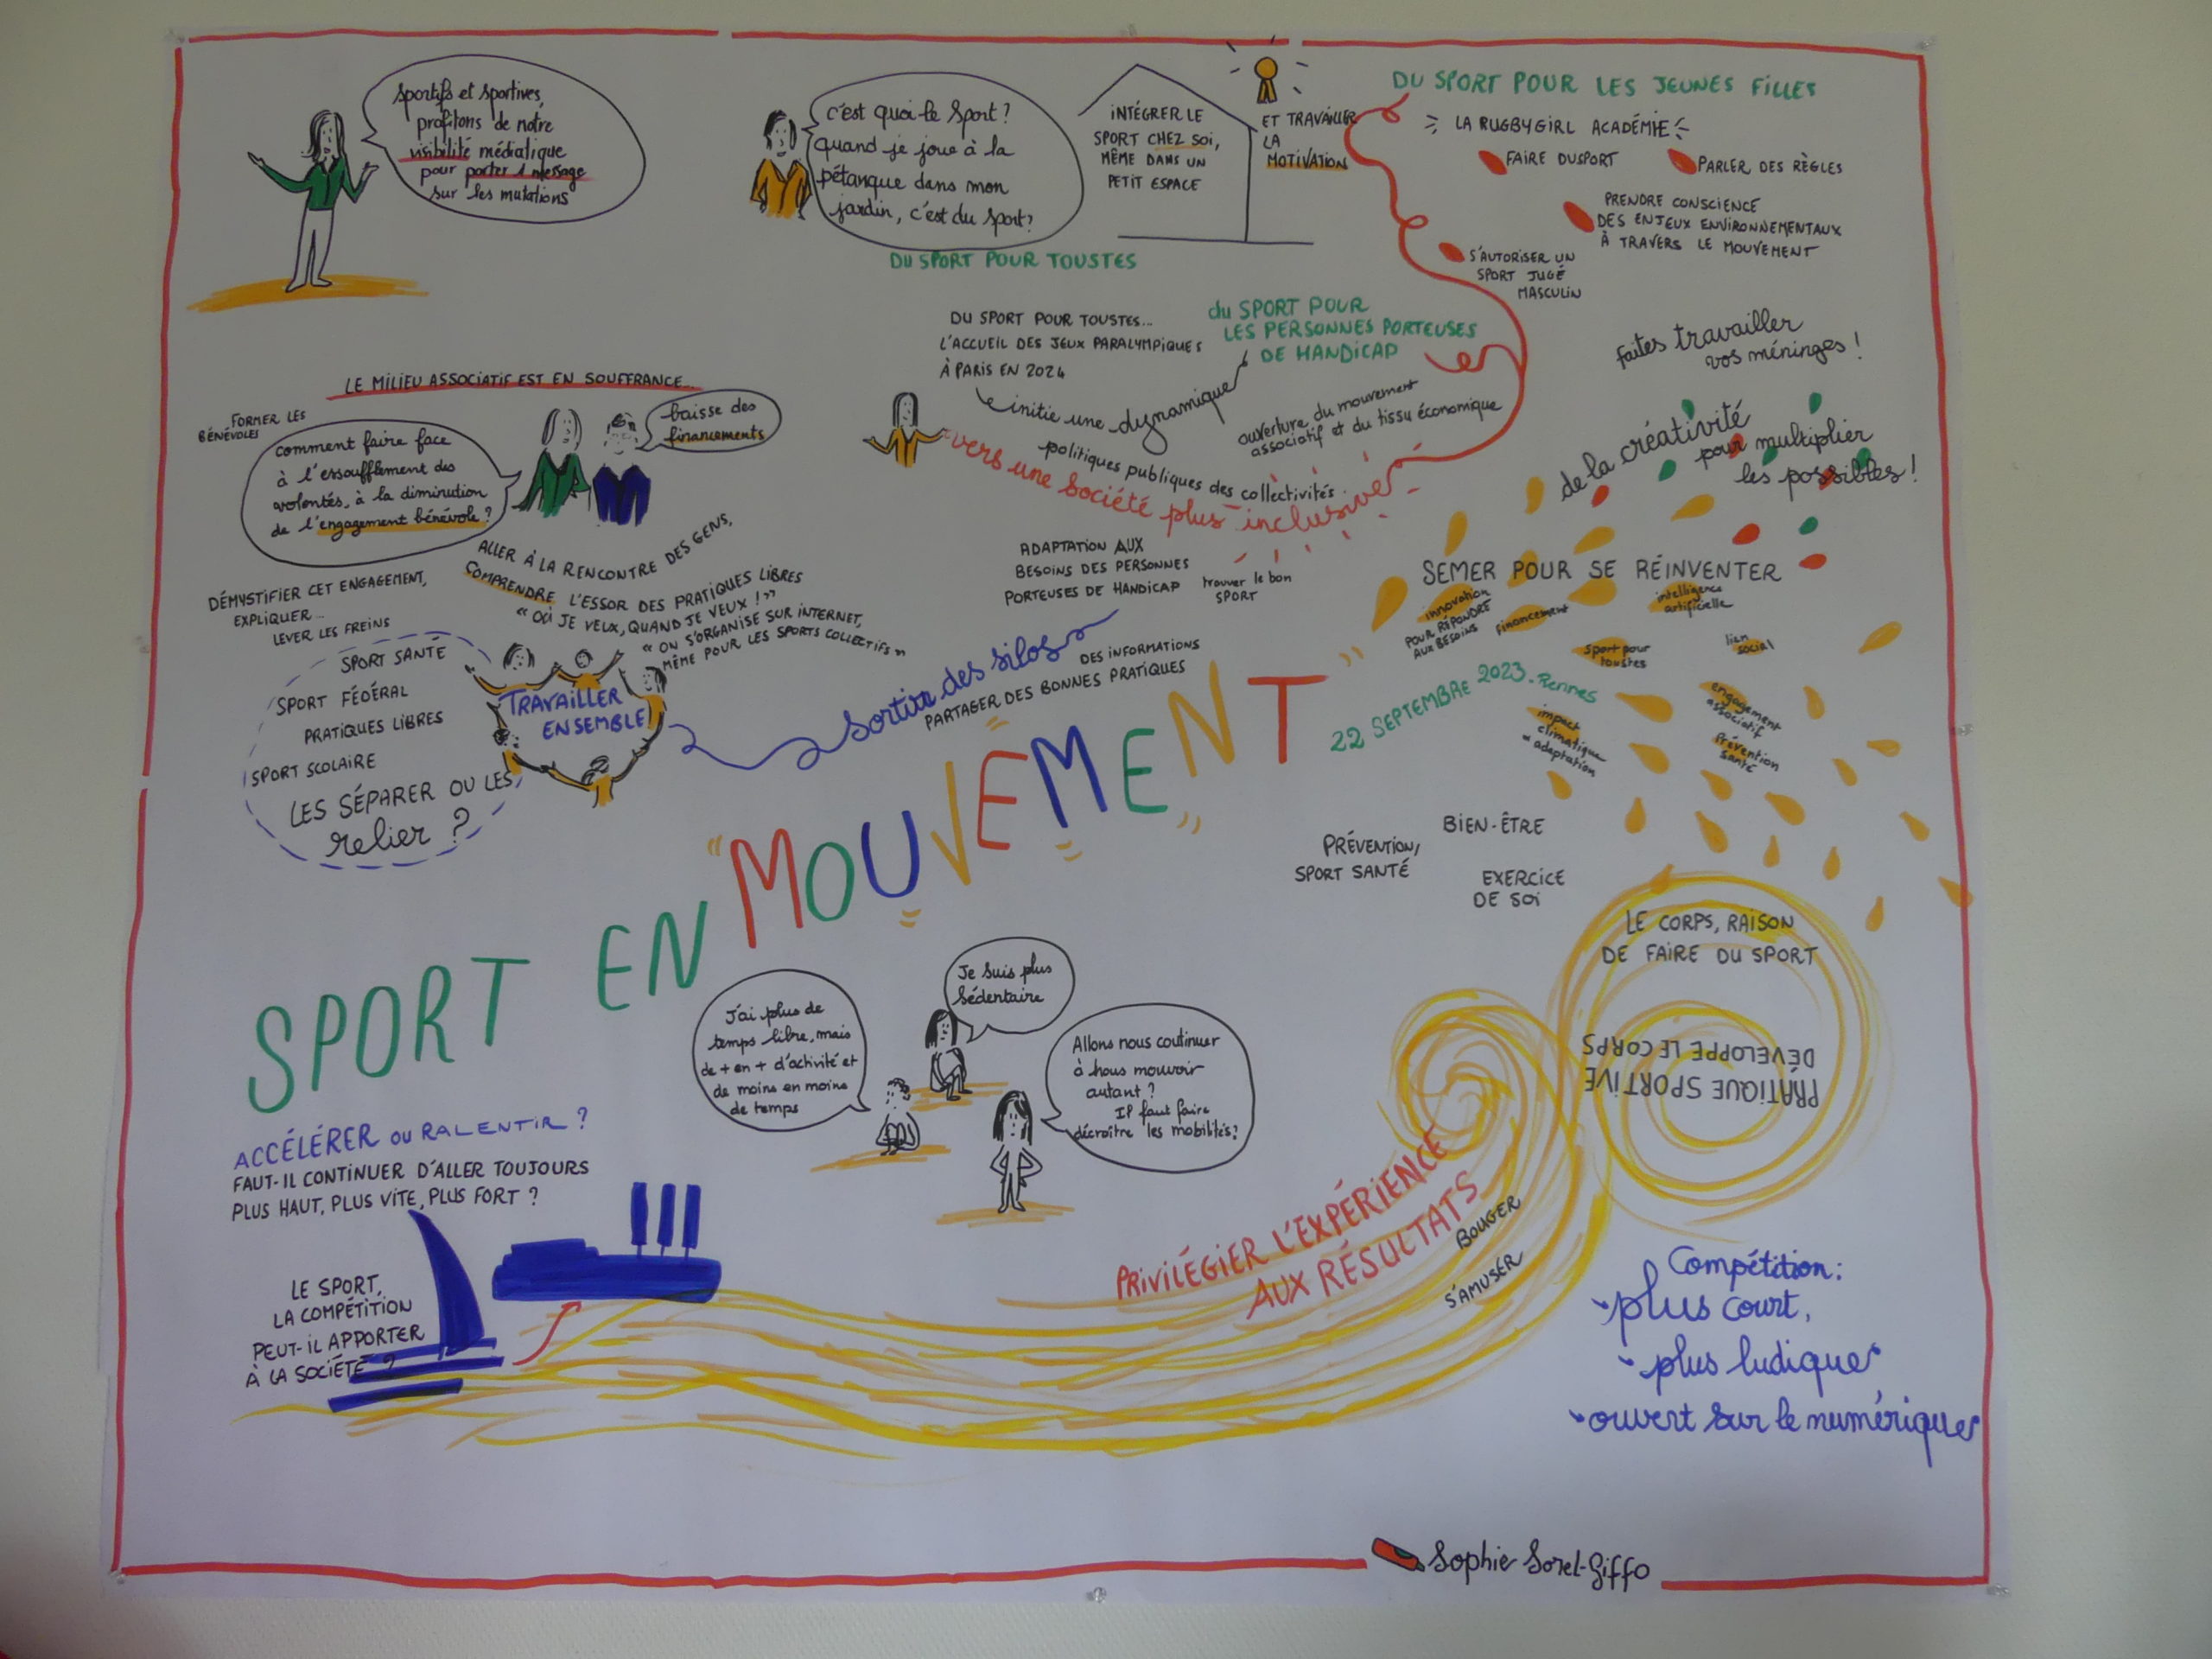 Sportifs et Sportives,
profitons de notre
visibilité médiatique
pour porter 1 message
sur les mutations
c'est quoi le Sport ?
quand je joue à la
pétanque dans mon
jardin, c'est du sport ?
DU SPORT POUR TOUSTES
INTÉGRER LE
SPORT CHEZ SOI,
MÊME DANS UN
PETIT ESPACE
ET TRAVAILLER
LA
MOTIVATION
DU SPORT POUR LES JEUNES FILLES
LA RUGBYGIRL ACADÉMIE
FAIRE DU SPORT
PARLER DES RÈGLES
PRENDRE CONSCIENCE
DES ENJEUX ENVIRONNEMENTAUX
À TRAVERS LE MOUVEMENT
S'AUTORISER UN
SPORT JUGÉ
MASCULIN
DU SPORT POUR TOUSTES...
L'ACCUEIL DES JEUX PARALYMPIQUES
À PARIS EN 2024
initie une dynamique
du SPORT POUR
LES PERSONNES PORTEUSES
DE HANDICAP
ouverture du mouvement
associatif et du tissu économique
politiques publiques des collectivités
vers une Société plus inclusive
ADAPTATION AUX
BESOINS DES PERSONNES
PORTEUSES DE HANDICAP
trouver le bon
SPORT
faites travailler
vos méninges !
de la créativité
pour multiplier
les possibles !
SEMER POUR SE RÉINVENTER
innovation
POUR RÉPONDRE
AUX BESOINS
financement
intelligence
artificielle
sport pour
toustes
lien
social
engagement
associatif
impact
climatique
adaptation
Prévention
santé
LE MILIEU ASSOCIATIF EST EN SOUFFRANCE...
FORMER LES
BÉNÉVOLES
comment faire face
à l'essoufflement des
volontés, à la diminution
de l'engagement bénévole ?
baisse des
financements
DÉMYSTIFIER CET ENGAGEMENT,
EXPLIQUER...
LEVER LES FREINS
ALLER À LA RENCONTRE DES GENS,
COMPRENDRE L'ESSOR DES PRATIQUES LIBRES
« OÙ JE VEUX, QUAND JE VEUX ! »
« ON S'ORGANISE SUR INTERNET,
MÊME POUR LES SPORTS COLLECTIFS »
SPORT SANTÉ
SPORT FÉDÉRAL
PRATIQUES LIBRES
SPORT SCOLAIRE
LES SÉPARER OU LES
relier ?
TRAVAILLER
ENSEMBLE
Sortir des silos
DES INFORMATIONS
PARTAGER DES BONNES PRATIQUES
SPORT EN "MOUVEMENT"
22 SEPTEMBRE 2023. Rennes
PRÉVENTION,
SPORT SANTÉ
BIEN-ÊTRE
EXERCICE
DE SOI
LE CORPS, RAISON
DE FAIRE DU SPORT
PRATIQUE SPORTIVE
DÉVELOPPE LE CORPS
J'ai plus de
temps libre, mais
de + en + d'activité et
de moins en moins
de temps
Je suis plus
Sédentaire
Allons nous continuer
à nous mouvoir
autant ?
Il faut faire
décroître les mobilités ?
ACCÉLÉRER OU RALENTIR ?
FAUT-IL CONTINUER D'ALLER TOUJOURS
PLUS HAUT, PLUS VITE, PLUS FORT ?
LE SPORT,
LA COMPÉTITION
PEUT-IL APPORTER
À LA SOCIÉTÉ ?
PRIVILÉGIER L'EXPÉRIENCE
AUX RÉSULTATS
BOUGER
S'AMUSER
Compétition :
plus court,
plus ludique
ouvert sur le numérique
Sophie Sorel-Giffo